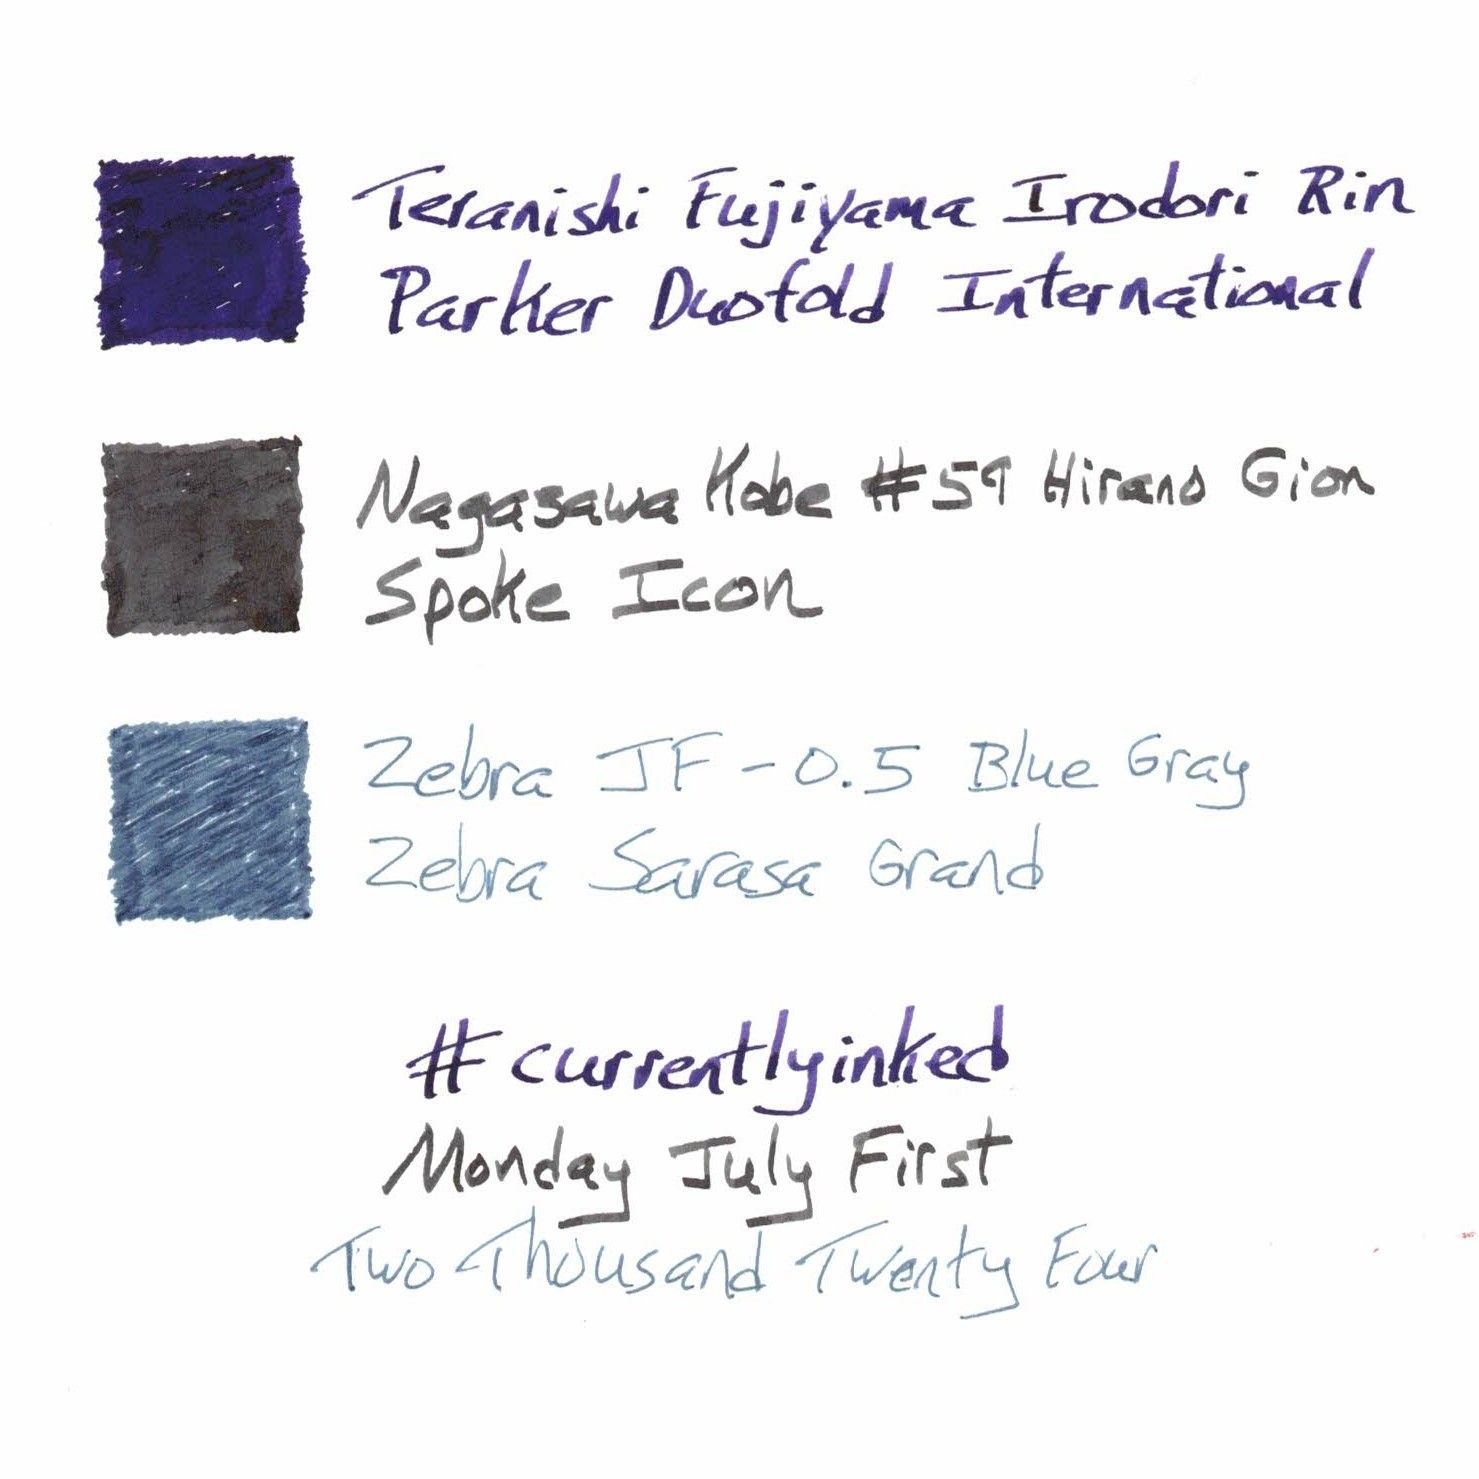 Teranishi Fujiyama Irodori Rin
Parker Duofold International
Nagasawa Kobe #59 Hirano Gion
Spoke Icon
Zebra JF-0.5 Blue Gray
Zebra Sarasa Grand
#currentlyinked
Monday July First
Two Thousand Twenty Four